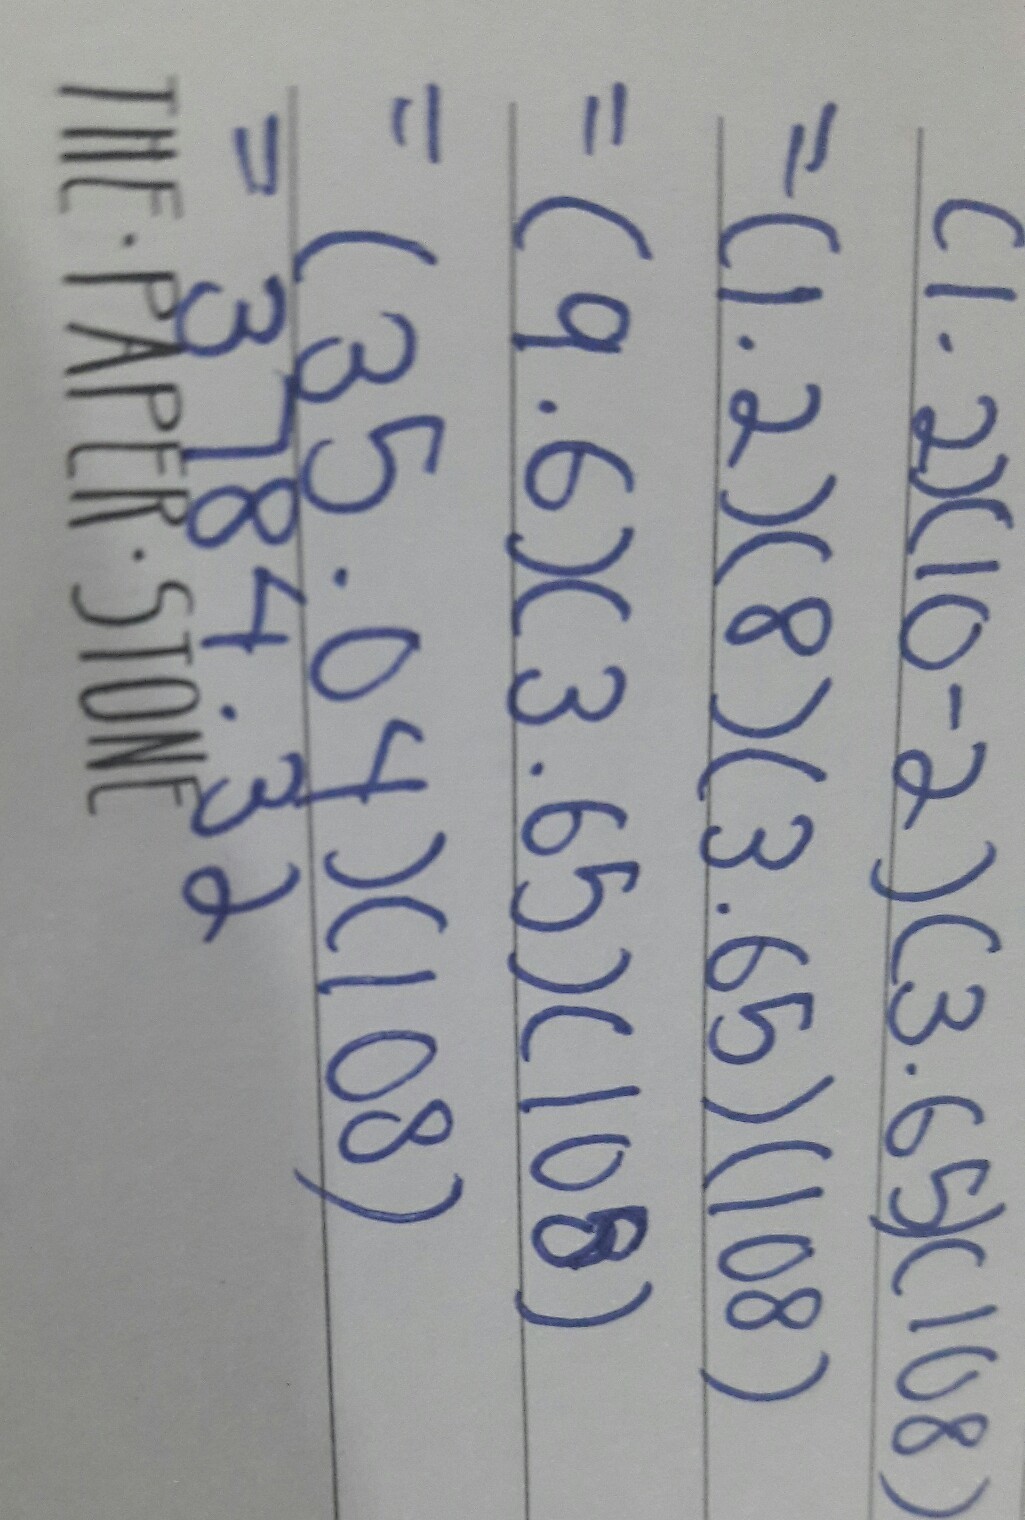 (1.2)(10-2)(3.65)(108)
=(1.2)(8)(3.65)(108)
=(9.6)(3.65)(108)
=(35.04)(108)
=3784.32
THE·PAPER·STONE